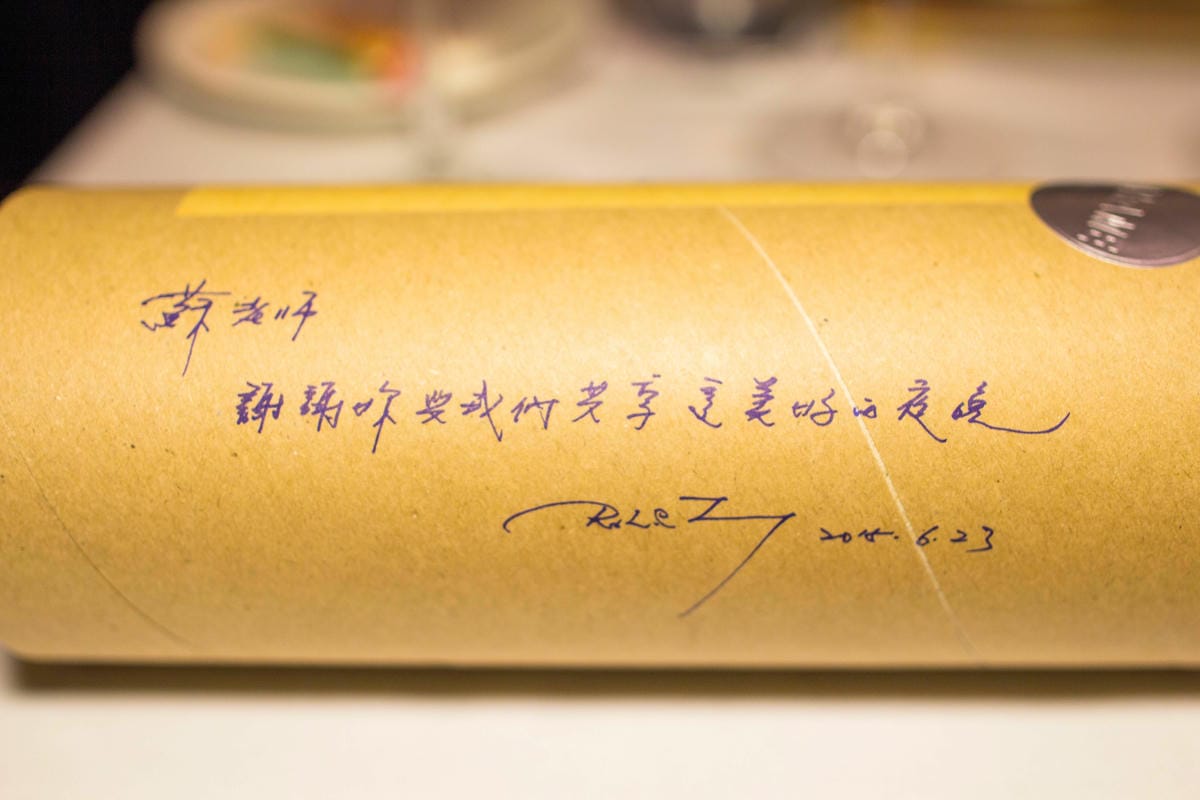 蘇老师
謝謝你與我們共享這美好的夜晚
6.23